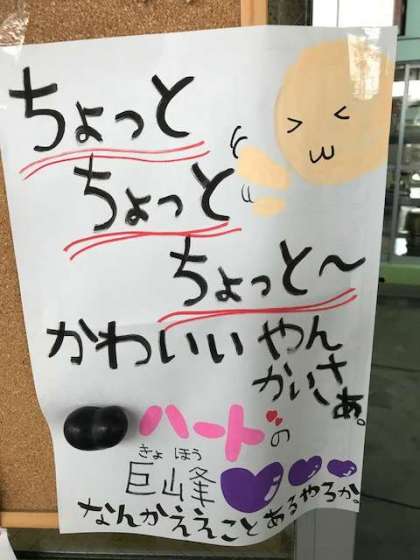 ちょっと
ちょっと
ちょっと〜
かわいいやん
かいさぁ。
ハートの
きょ ほう
巨峰
なんかええことあるやろか。